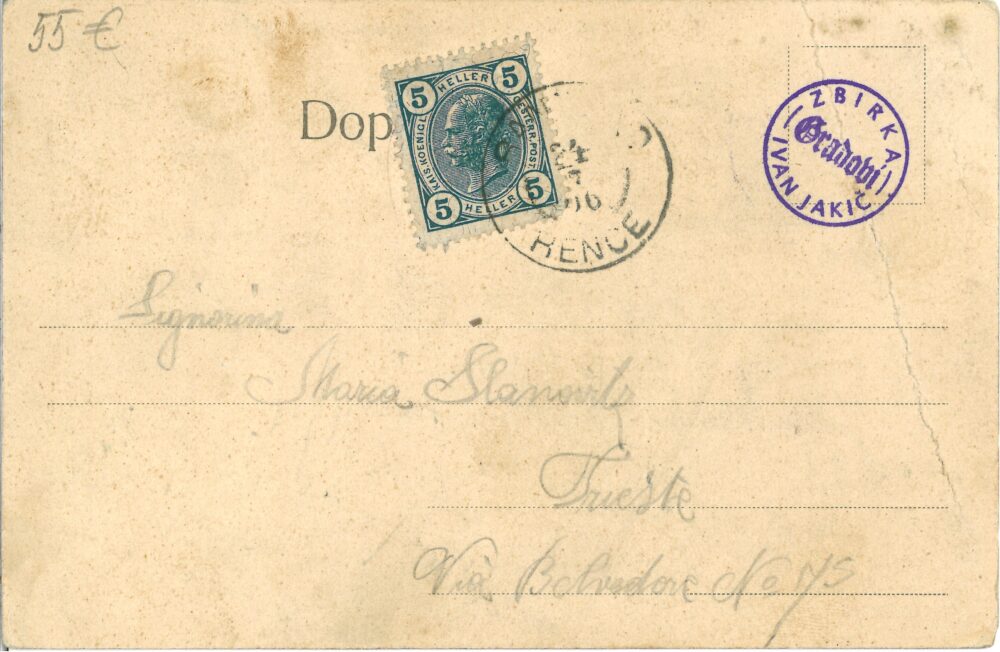 55 €
Dop
5 HELLER 5
KAIS. KOENIGL. OESTERR. POST
5 HELLER 5
24
06
RENCE
ZBIRKA
Gradovi
IVAN JAKIČ
Signorina
Maria
Trieste
Via Belvedere No